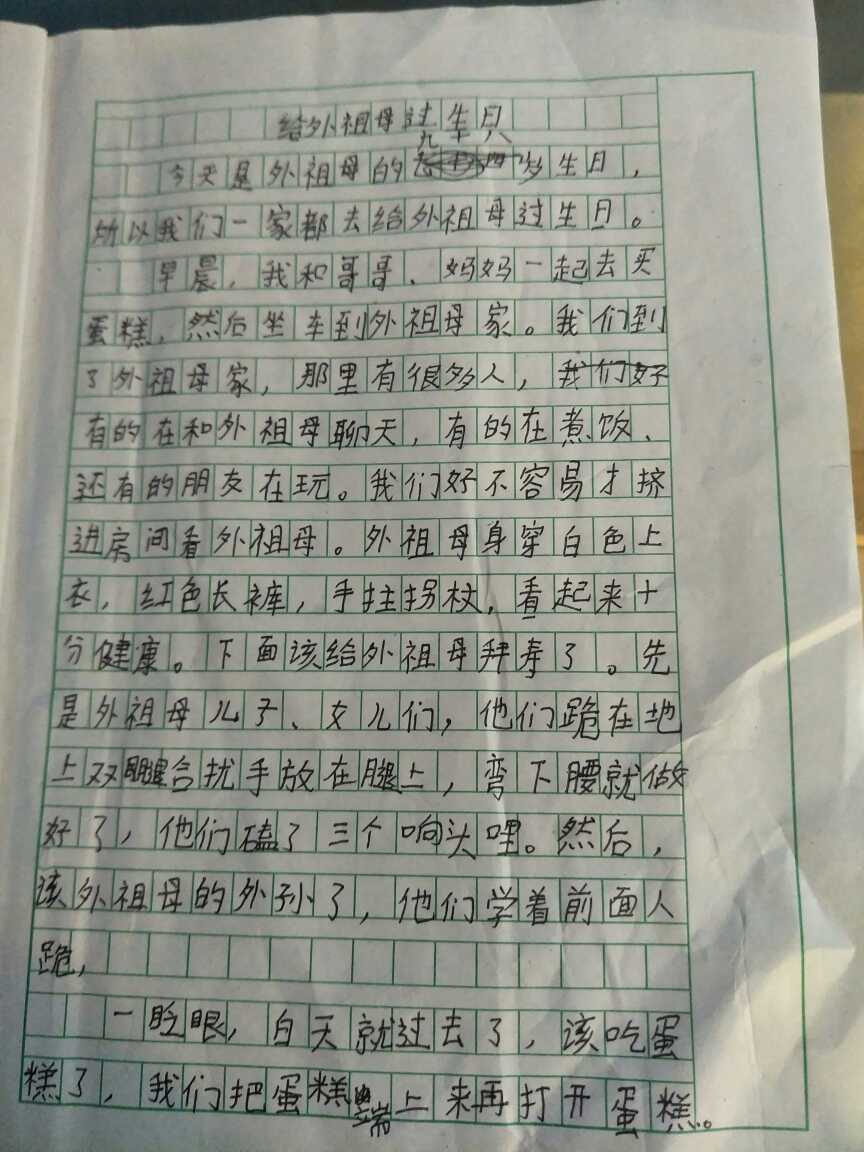 给外祖母过生日
今天是外祖母的九十八岁生日，
所以我们一家都去给外祖母过生日。
早晨，我和哥哥、妈妈一起去买
蛋糕，然后坐车到外祖母家。我们到
了外祖母家，那里有很多人，我们好
有的在和外祖母聊天，有的在煮饭、
还有的朋友在玩。我们好不容易才挤
进房间看外祖母。外祖母身穿白色上
衣，红色长裤，手拄拐杖，看起来十
分健康。下面该给外祖母拜寿了。先
是外祖母儿子、女儿们，他们跪在地
上双腿合扰手放在腿上，弯下腰就做
好了，他们磕了三个响头哩。然后，
该外祖母的外孙了，他们学着前面人
跪，
一眨眼，白天就过去了，该吃蛋
糕了，我们把蛋糕端上来再打开蛋糕。